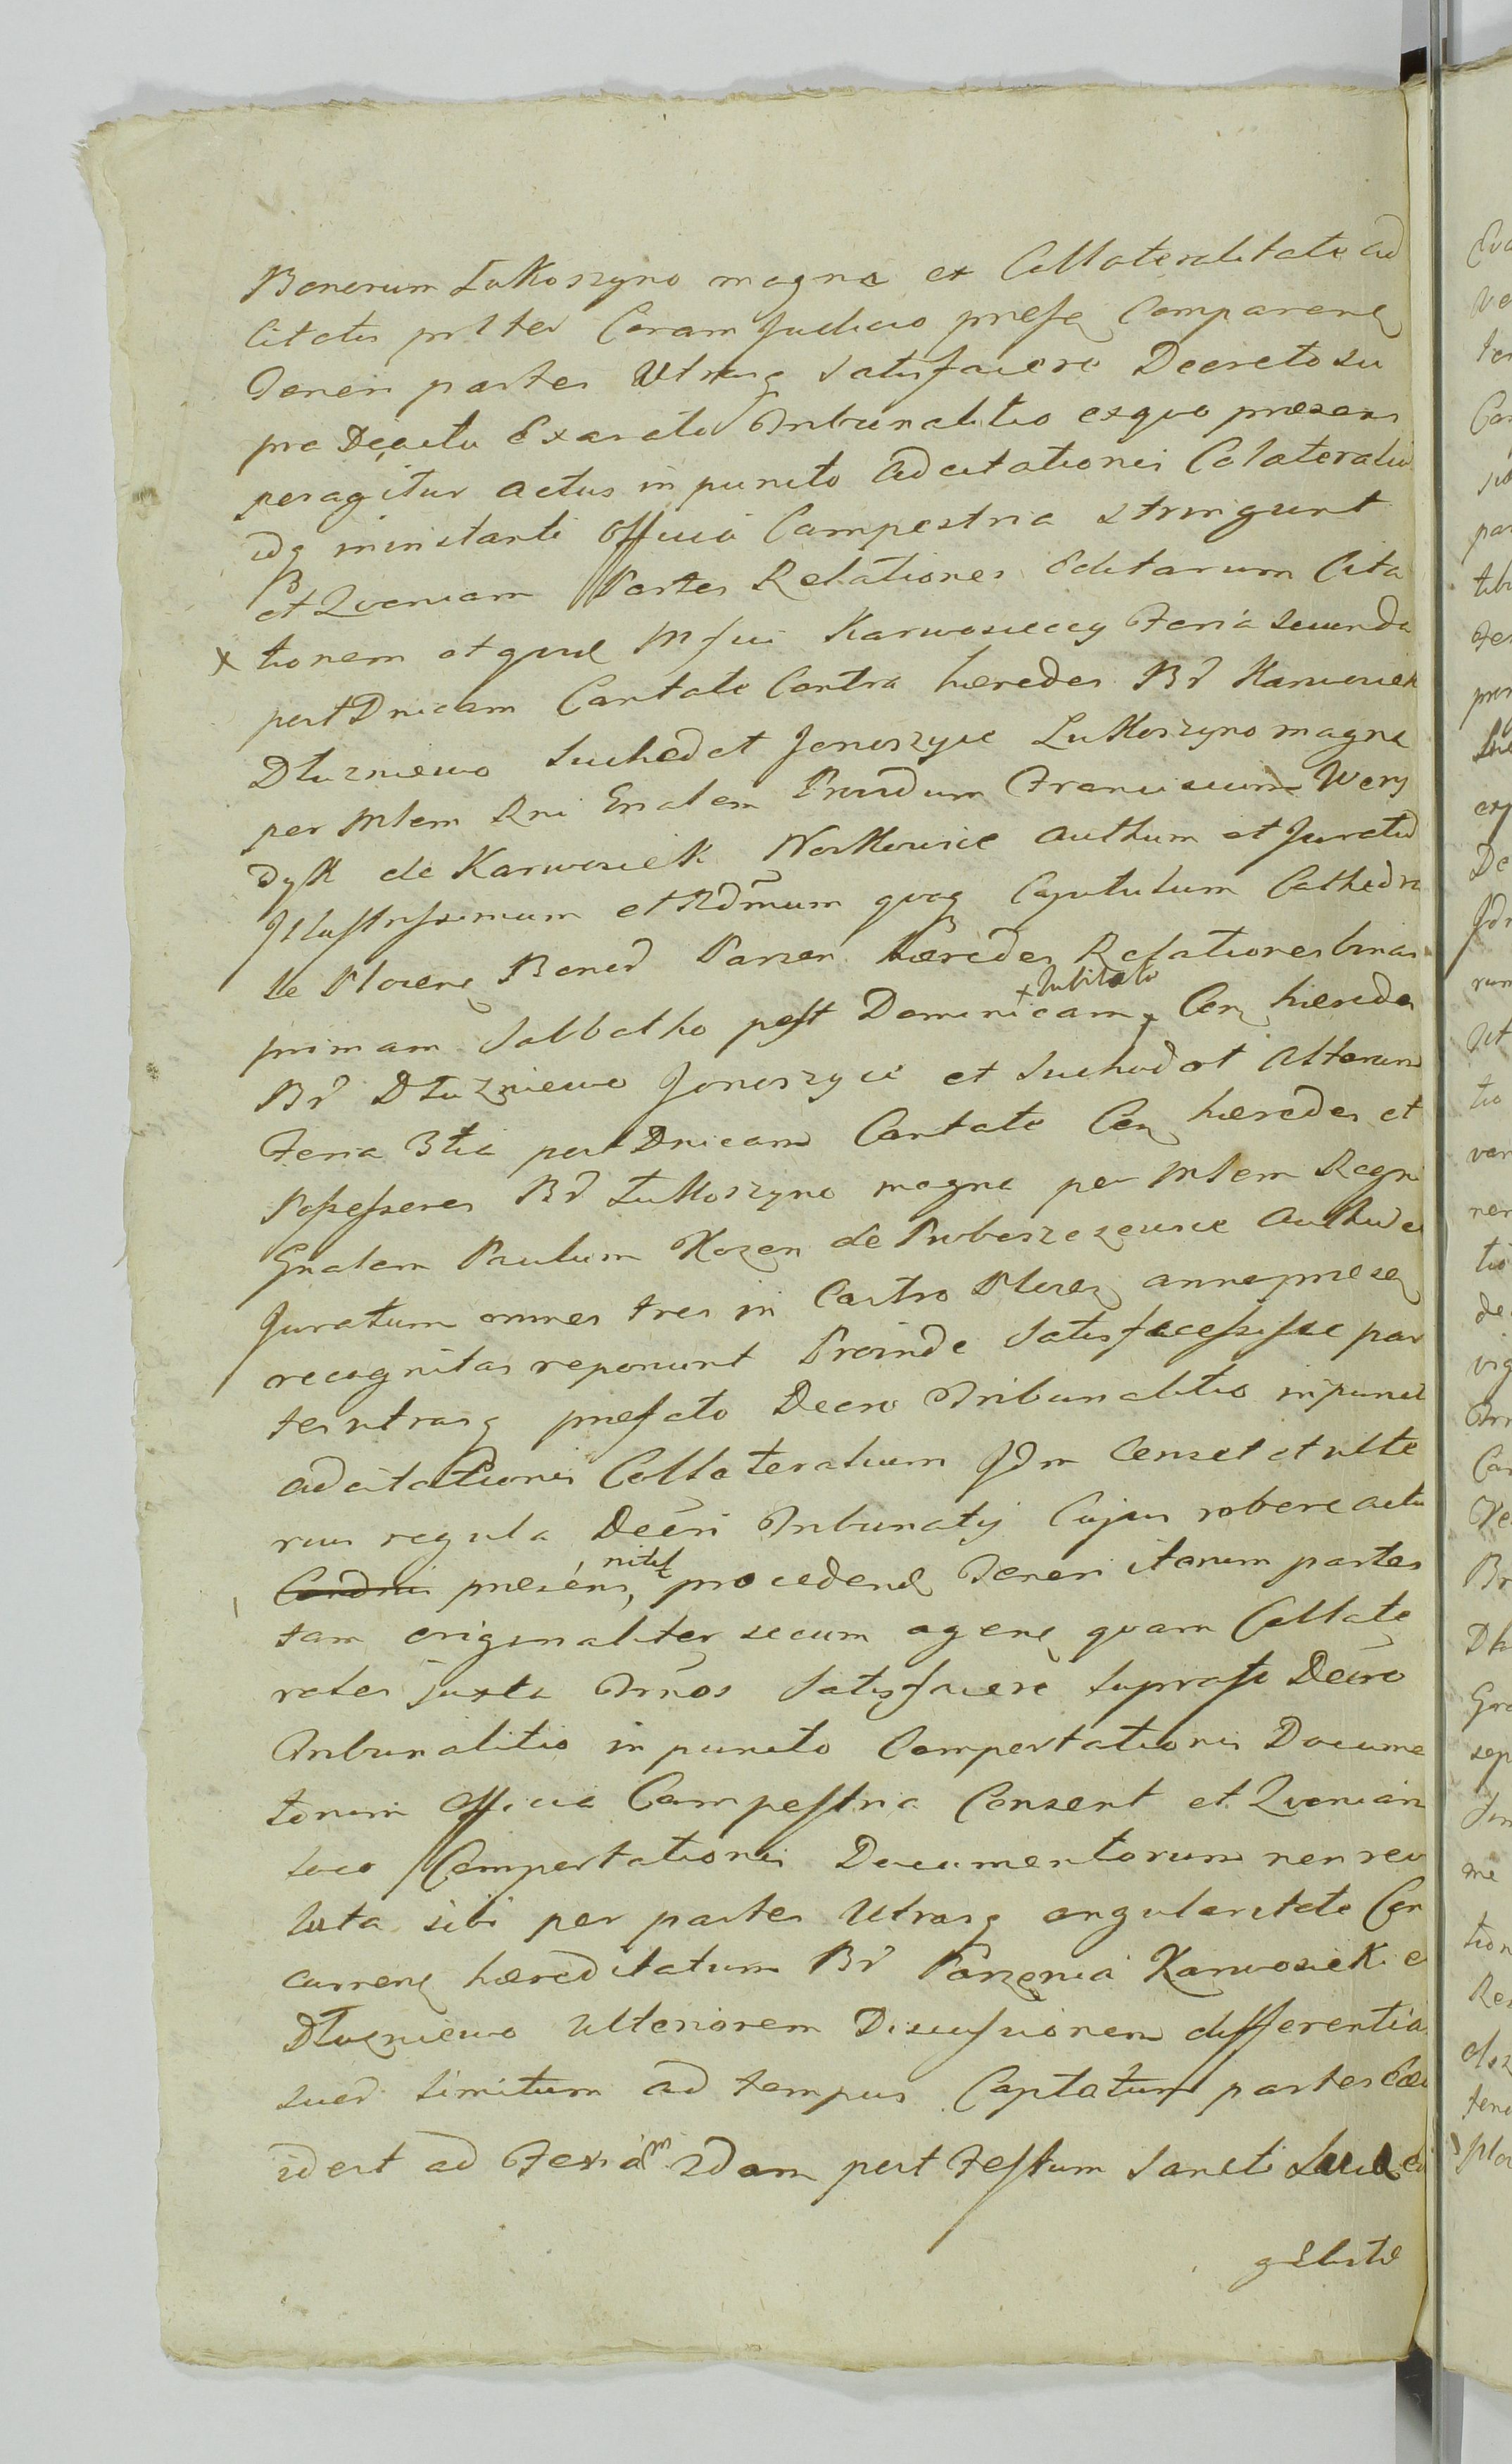 Bonorum Łukoszyno magna ex Collateralitate ad
citatis Coram Judicio prese Comparen
Teneri partes Utrasq satisfacere Decreto su
pra Exarato Tribunalitio exquo præsens
peragitur actus in puncto Adcitationis Colateraliu
idq ininstanti Officia Campestria stringunt
et Quoniam Partes Relationes Editarum Cita
x tionem Karwosieccy Feria Secunda
post Dnicam Cantate Contra hæredes Bd Karwosiek
Dłuzniewo Suchodot Jonoszyce Lukoszyno magna
per Mtem Rni Gnalem Providum Franciscum Wery
dyk de Karwosiek Noskowice authum et Juratu
Illustrissimum et Rdmum quoq Capitulum Cathedra
le Plocen Bonod Parzen hæredes Relationes binas
primam Sabbatho post Dominicam x Jubilate Con hæredes
Bd Dłużniewo Jonoszyce et Suchodot Alteram
Feria 3tia post Dnicam Cantate Con hæredes et
Possessores Bd Łukoszyno magna per Mtem Regni
Gnalem Paulum Kozen de Proboszczewice Authu et
Juratum omnes tres in Castro Plocen anno præsen
recognitas reponunt Proinde Satisfacessisse par
tes utrasq præfato Decro Tribunalitio in punct
adcitationis Collateralium Jdm Censet et ulte
rius regula Decri Tribunalij Cujus robore actu
præsens, nitit procedend Teneri iterum partes
tam originaliter secum agen quam Collate
rales juxta Trnos Satisfacere Suprasc Decro
Tribunalitio in puncto Comportationis Docume
torum Officia Campestria Censent et Quoniam
loco Comportationis Documentorum non reso
luta sibi per partes Utrasq angularitate Con
curren hæreditatum Bd Parzenia Karwosieki e
Dłuzniewo Ulteriorem Discussionem differentia
suar limitum ad tempus Captatum partes
idest ad Feriam 2dam post Festum Sancti